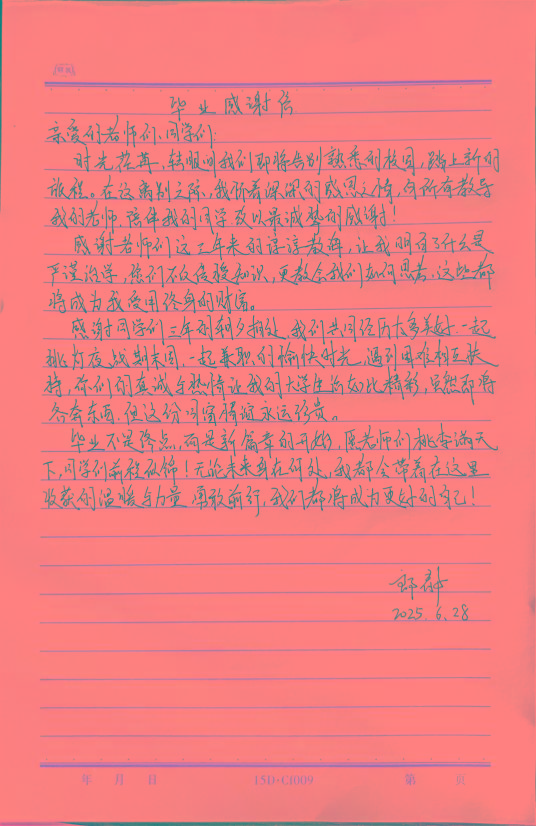 毕业感谢信
亲爱的老师们、同学们:
时光荏苒,转眼间我们即将告别熟悉的校园,踏上新的
旅程。在这离别之际,我怀着深深的感恩之情,向所有教导
我的老师,陪伴我的同学致以最诚挚的感谢!
感谢老师们这三年来的谆谆教诲,让我明白了什么是
严谨治学,您们不仅传授知识,更教会我们如何思考,这些都
将成为我受用终身的财富。
感谢同学们三年的朝夕相处,我们共同经历太多美好,一起
挑灯夜战期末周,一起兼职的愉快时光,遇到困难相互扶
持,你们的真诚与热情让我的大学生活如此精彩,虽然即将
各奔东西,但这份同窗情谊永远珍贵。
毕业不是终点,而是新篇章的开始,愿老师们桃李满天
下,同学们前程似锦!无论未来身在何处,我都会带着在这里
收获的温暖与力量,勇敢前行,我们都将成为更好的自己!
2025.6.28
年 月 日 15D-C1009 第 页